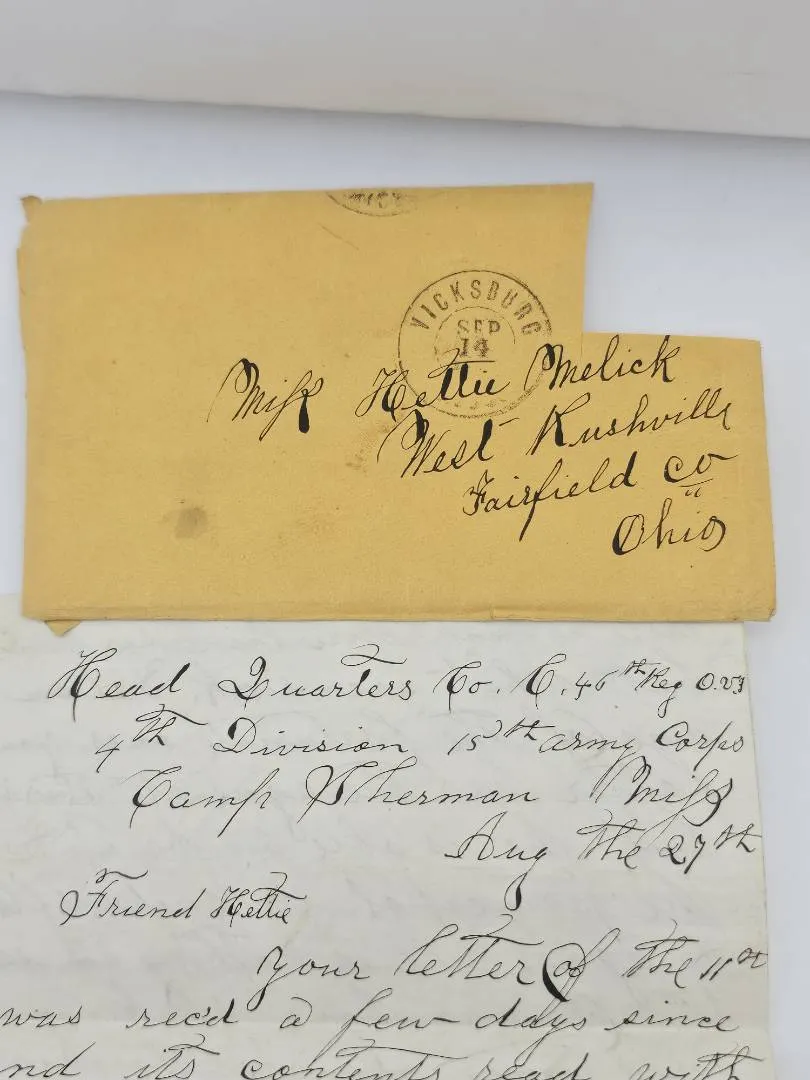 VICKSBURG
SEP
14
Miss Hettie Melick
West Rushville
Fairfield co
Ohio
Head Quarters Co. C. 46th Reg O.V.I
4th Division 15th army Corps
Camp Sherman Miss
Aug the 27th
Friend Hettie
your letter of the 11th
was rec'd a few days since
and its contents read with